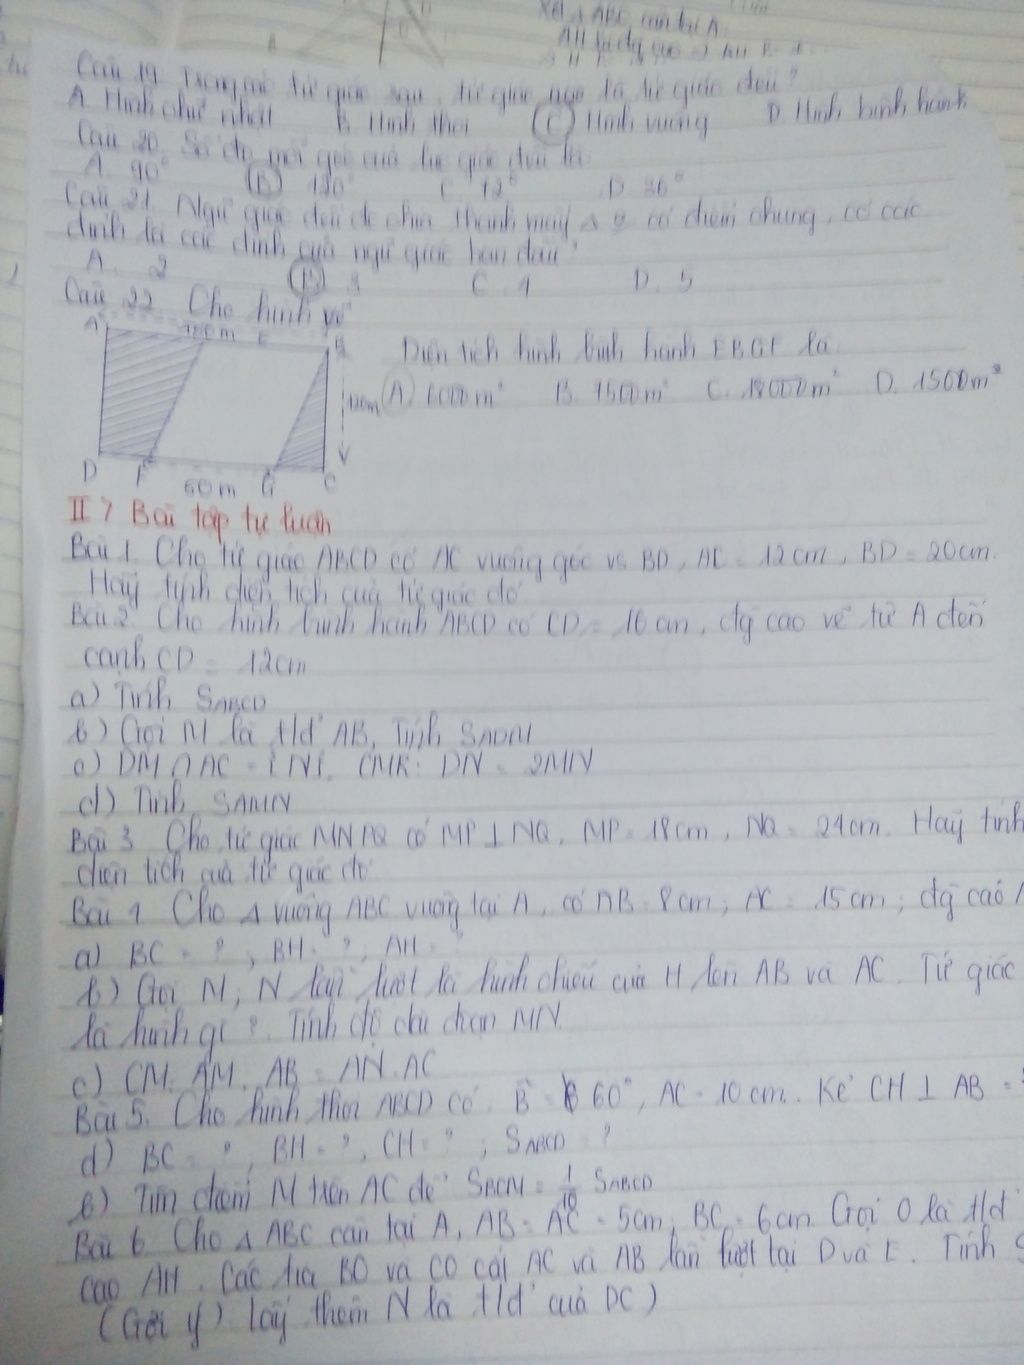 Xét Δ ABC cân tại A.
Câu 19. Trong các tứ giác sau, tứ giác nào là tứ giác đều?
A. Hình chữ nhật B. Hình thoi C. Hình vuông D. Hình bình hành
Câu 20. Số đo mỗi góc của lục giác đều là
A. 90° B. 120° C. 72° D. 36°
Câu 21. Ngũ giác đều đc chia thành mấy Δ có điểm chung, có các
đỉnh là các đỉnh của ngũ giác ban đầu?
A. 2 B. 3 C. 4 D. 5
Câu 22. Cho hình vẽ
A E B
Diện tích hình bình hành EBGF là
A. 6000m² B. 7500m² C. 18000m² D. 1500m²
D F 50m G C
II> Bài tập tự luận
Bài 1. Cho tứ giác ABCD có AC vuông góc vs BD, AC = 12cm, BD = 20cm.
Hãy tính diện tích của tứ giác đó.
Bài 2. Cho hình bình hành ABCD có CD = 16cm, đg cao vẽ từ A đến
cạnh CD = 12cm
a) Tính SABCD
b) Gọi M là t/đ AB, Tính SADM
c) DM ∩ AC = {N}. CMR: DN = 2MN
d) Tính SAMN
Bài 3. Cho tứ giác MNPQ có MP ⊥ NQ, MP = 18cm, NQ = 24cm. Hãy tính
diện tích của tứ giác đó
Bài 4. Cho Δ vuông ABC vuông tại A, có AB = 8cm; AC = 15cm; đg cao
a) BC = ?, BH = ?, AH = ?
b) Gọi M, N lần lượt là hình chiếu của H lên AB và AC. Tứ giác
là hình gì?. Tính độ dài đoạn MN.
c) CM: AM. AB = AN. AC
Bài 5. Cho hình thoi ABCD có B = 60°, AC = 10cm. Kẻ CH ⊥ AB =
d) BC = ?, BH = ?, CH = ?, SABCD = ?
b) Tìm điểm M trên AC để SBCM = 1/10 SABCD
Bài 6. Cho Δ ABC cân tại A, AB = AC = 5cm, BC = 6cm. Gọi O là t/đ
cao AH. Các tia BO và CO cắt AC và AB lần lượt tại D và E. Tính S
(Gợi ý) lấy thêm N là t/đ của DC)